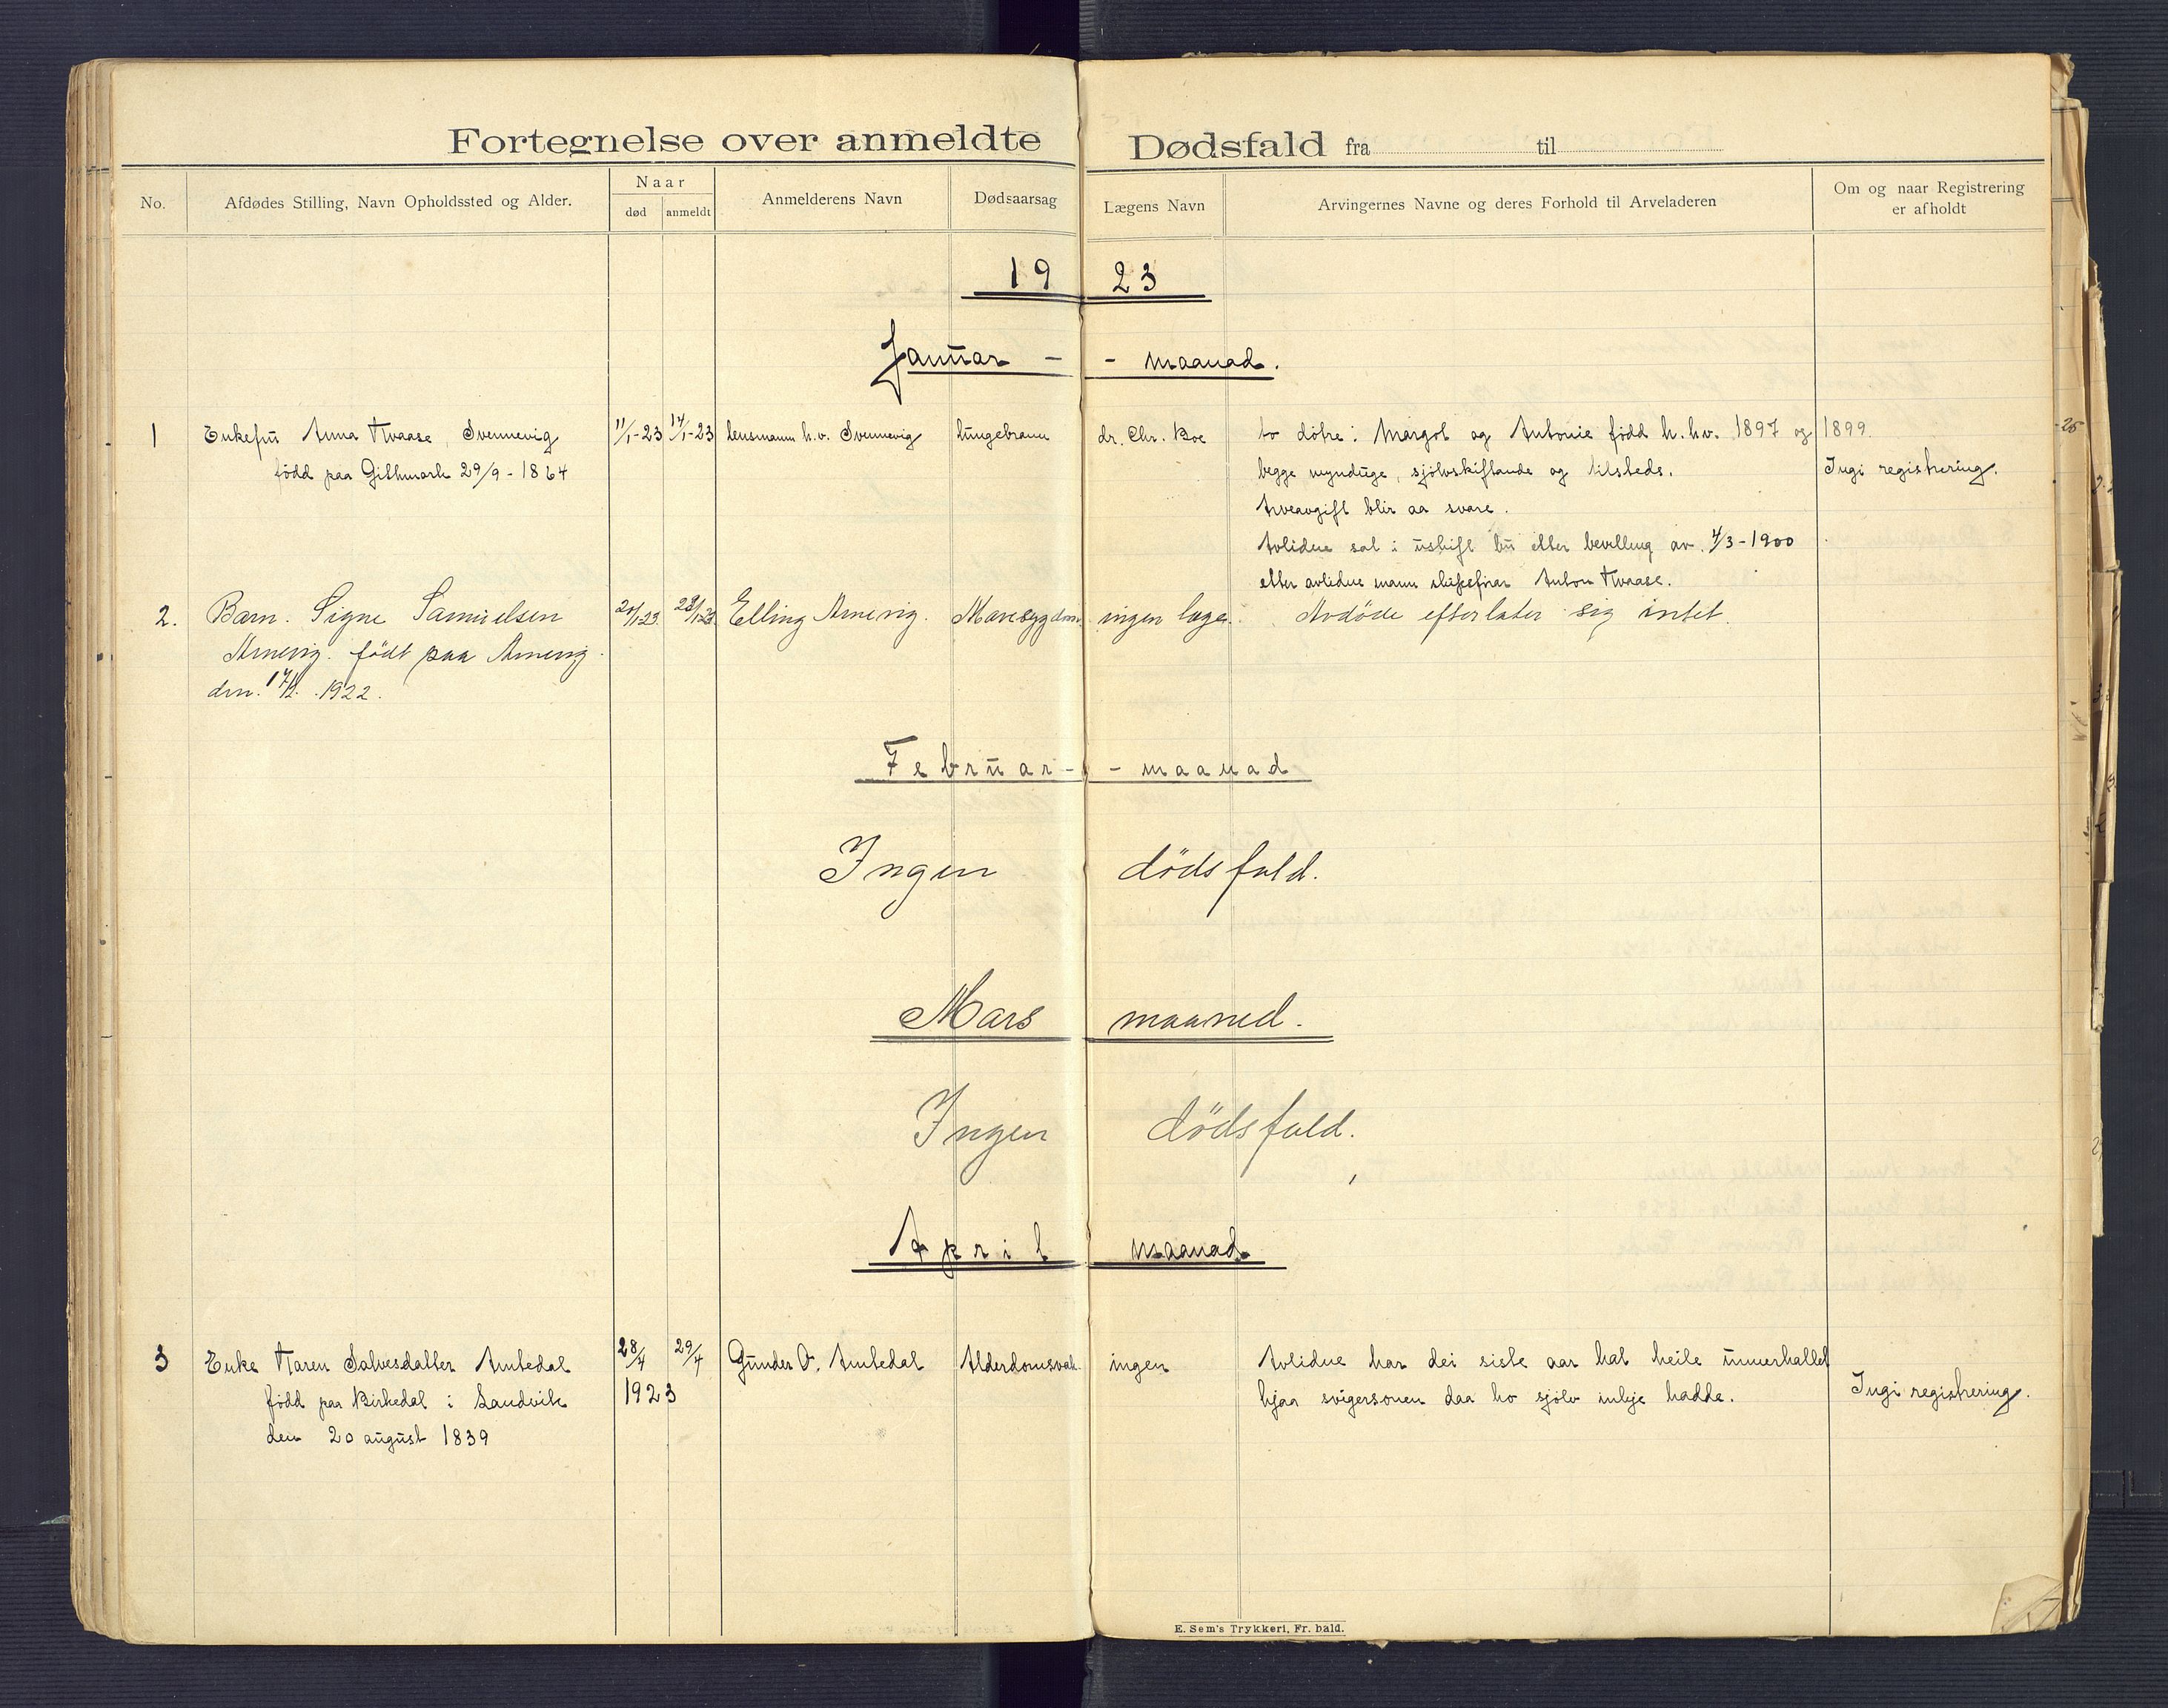 Fortegnelse over anmeldte Dødsfald fra til
No. Afdødes Stilling, Navn Opholdssted og Alder. Naar død anmeldt Anmelderens Navn Dødsaarsag Lægens Navn Arvingernes Navne og deres Forhold til Arveladeren Om og naar Registrering er afholdt
1923
Januar - - maanad.
1 Enkefru Anna Kvaase, Svennevig 11/1-23 14/1-23 lensmann h.v. Svennevig lungebrann dr. Chr. Boe to døtre: Margot og Antonie född h.h.v. 1897 og 1899.
född paa Githmark 29/9-1864 begge mynduge, sjölvskiftande og tilsteds. Ingi registrering.
Arveavgift blir aa svare.
Avlidne sat i uskift bu etter bevilling av 4/3-1900
etter avlidne mann skipsförar Anton Kvaase.
2. Barn. Signe Samuelsen Elling Amevig. Mavesygdom ingen læge. Avdöde efterlater sig intet.
Amevig. födt paa Amevig
den. 1922.
Februar - - maanad
Ingen dödsfald.
Mars maaned.
Ingen dödsfald.
April maanad
3 Enke Karen Salvesdatter Amtedal 28/4 29/4 Gunder O. Amtedal Alderdomsvak. ingen Avlidne har dei siste aar hat heile underhallet
född paa Birkedal i Landvik 1923 hjaa svigersonen daa ho sjölv inkje hadde. Ingi registrering.
den 20 august 1839
E. Sem's Trykkeri, Fr. hald.